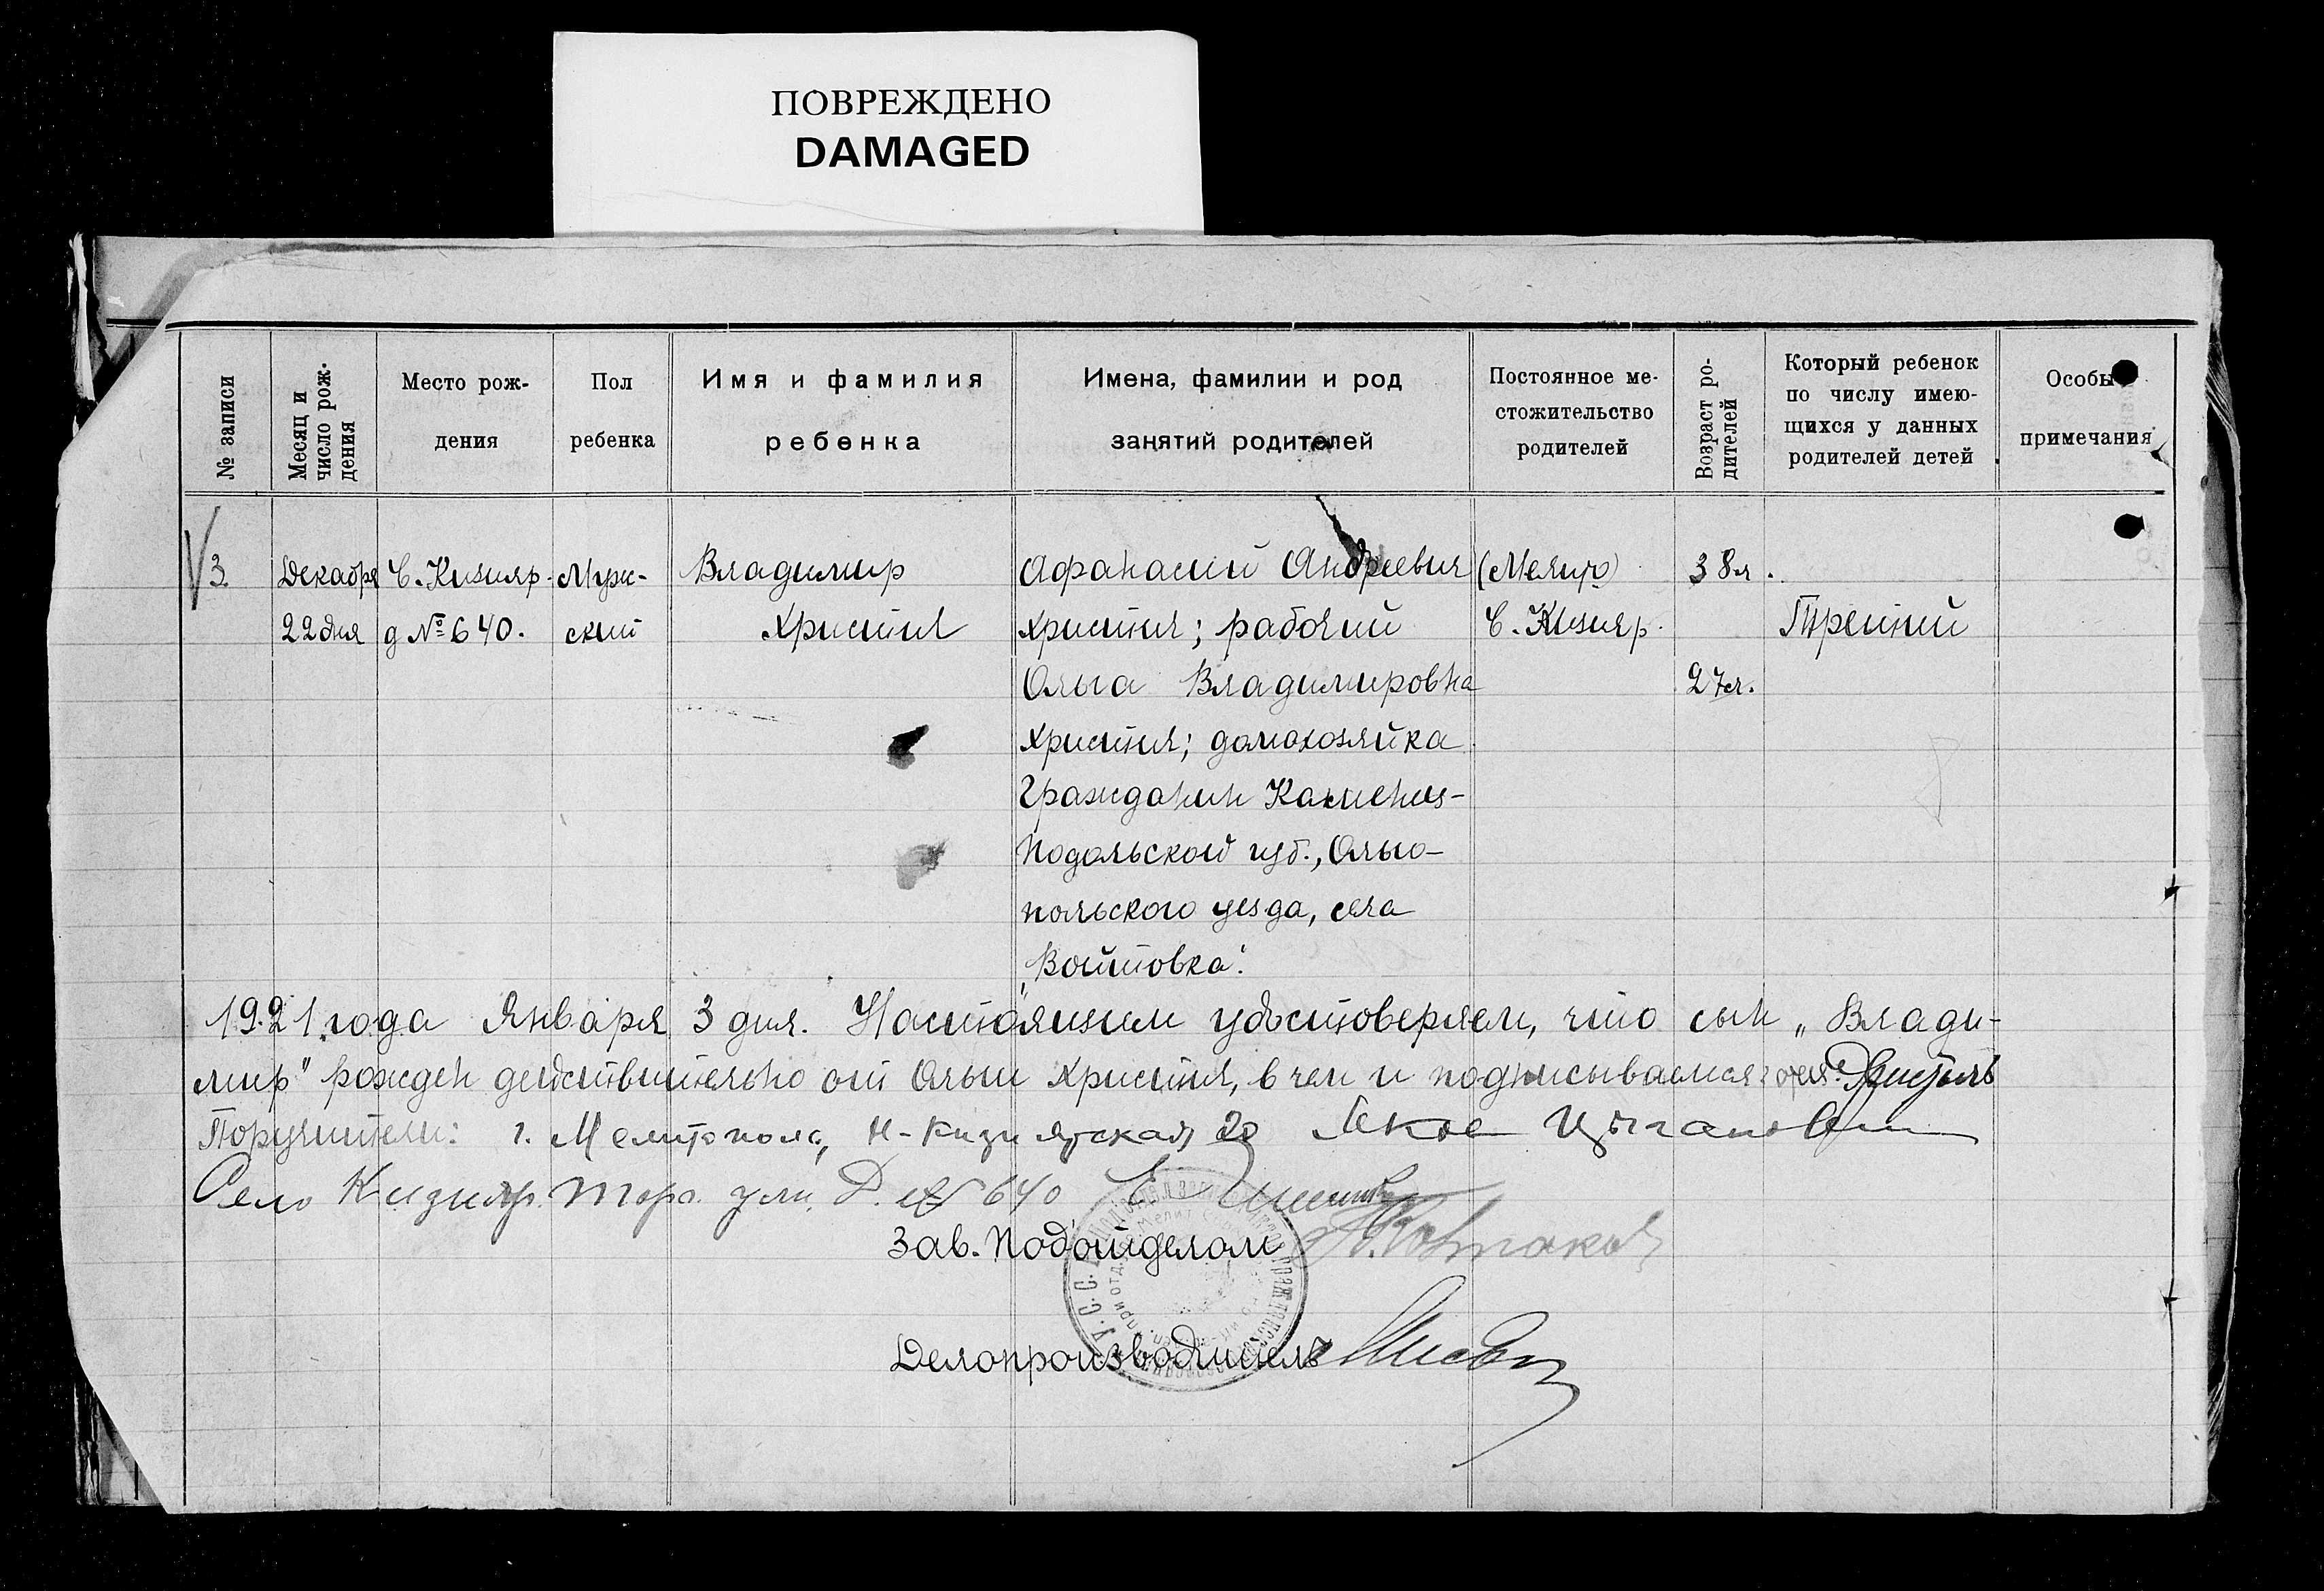 ПОВРЕЖДЕНО
DAMAGED
№ записи
Месяц и
число рож-
дения
Место рож-
дения
Пол
ребенка
Имя и фамилия
ребенка
Имена, фамилии и род
занятий родителей
Постоянное ме-
стожительство
родителей
Возраст ро-
дителей
Который ребенок
по числу имею-
щихся у данных
родителей детей
Особы
примечания
3.
Декабря
22 дня
С. Кизияр.
д № 640.
Муж-
ской
Владимир
Христич
Афанасий Андреевич
Христич; рабочий
Ольга Владимировна
Христич; домохозяйка
Гражданин Каменец-
Подольской губ., Ольго-
польского уезда, села
„Войтовка".
С. Кизияр.
38 л.
27 л.
Третий
1921 года Января 3 дня. Настоящим удостоверяем, что сын „Влади-
мир" рожден действительно от Ольги Христич, в чем и подписываемся:
Поручители: г. Мелитополь, Н-Кизиярская 20
Село Кизияр. Торг. ули. Д. № 640
Зав. Подотделом
Делопроизводитель